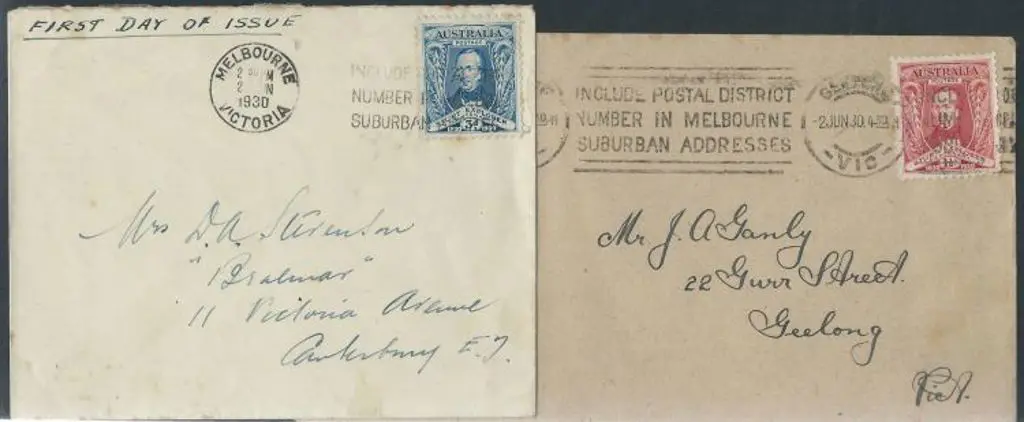 FIRST DAY OF ISSUE
MELBOURNE
2 N
1930
VICTORIA
INCLUDE
NUMBER
SUBURBAN
AUSTRALIA
POSTAGE
3d
Mrs D.A. Stevenson
"Bralmar"
11 Victoria Avenue
Canterbury E.7.
INCLUDE POSTAL DISTRICT
NUMBER IN MELBOURNE
SUBURBAN ADDRESSES
-2JUN.30.4-
-VIC-
AUSTRALIA
Mr J. A Ganly
22 Gurr Street.
Geelong
Vict.